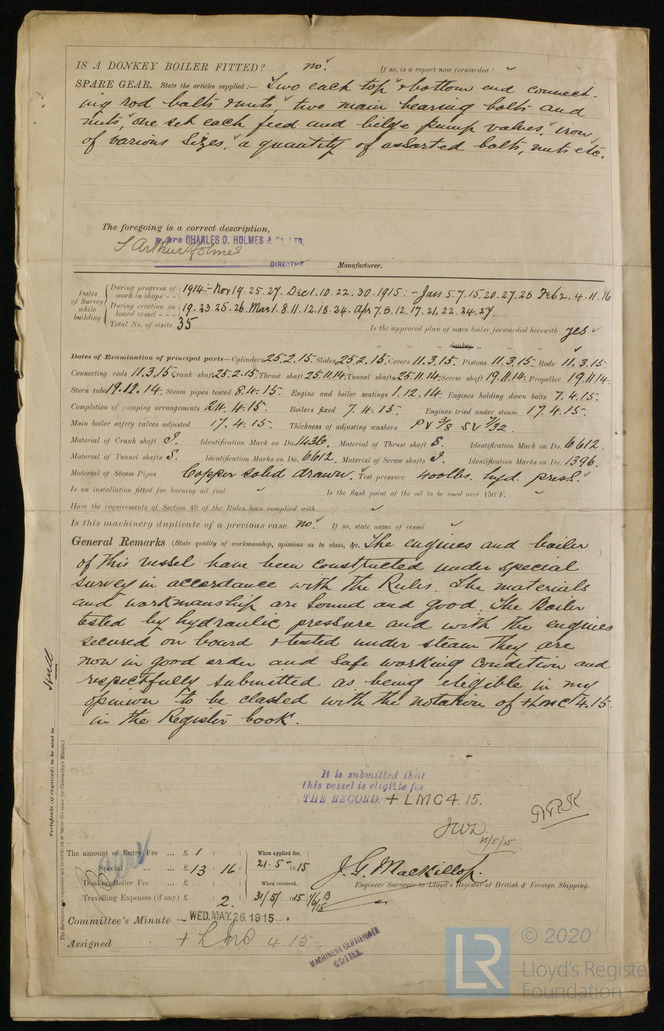 IS A DONKEY BOILER FITTED? no. If so, is a report now forwarded?
SPARE GEAR. State the articles supplied:— Two each top & bottom end connect-
ing rod bolts & nuts, two main bearing bolts and
nuts, one set each feed and bilge pump valves, iron
of various sizes, a quantity of assorted bolts, nuts etc.
The foregoing is a correct description,
pro CHARLES D. HOLMES & Co. LTD.
Arthur Holmes
DIRECTOR Manufacturer.
Dates of Survey while building
During progress of work in shops - - 1914:- Nov 19. 25. 27. Dec 1. 10. 22. 30. 1915:- Jan 5. 7. 15. 20. 27. 28 Feb 2. 4. 11. 16
During erection on board vessel - - - 19. 23. 25. 26. Mar 1. 8. 11. 12. 18. 24. Apr 7. 8. 12. 17. 21. 22. 24. 27.
Total No. of visits 35 Is the approved plan of main boiler forwarded herewith yes
" " " donkey " " "
Dates of Examination of principal parts—Cylinders 25.2.15. Slides 25.2.15. Covers 11.3.15. Pistons 11.3.15. Rods 11.3.15.
Connecting rods 11.3.15. Crank shaft 25.2.15. Thrust shaft 25.11.14. Tunnel shafts 25.11.14. Screw shaft 19.11.14. Propeller 19.11.14.
Stern tube 19.11.14. Steam pipes tested 8.4.15. Engine and boiler seatings 1.12.14. Engines holding down bolts 7.4.15.
Completion of pumping arrangements 24.4.15. Boilers fixed 7.4.15. Engines tried under steam 17.4.15.
Main boiler safety valves adjusted 17.4.15. Thickness of adjusting washers P V 3/8 S V 7/32.
Material of Crank shaft I. Identification Mark on Do. 1436. Material of Thrust shaft S. Identification Mark on Do. 6612.
Material of Tunnel shafts S. Identification Marks on Do. 6612. Material of Screw shafts I. Identification Marks on Do. 1396.
Material of Steam Pipes Copper solid drawn. Test pressure 400 lbs. hyd. press.
Is an installation fitted for burning oil fuel Is the flash point of the oil to be used over 150°F.
Have the requirements of Section 49 of the Rules been complied with
Is this machinery duplicate of a previous case no. If so, state name of vessel
General Remarks (State quality of workmanship, opinions as to class, &c. The engines and boiler
of this vessel have been constructed under special
survey in accordance with the Rules. The materials
and workmanship are sound and good. The Boiler
tested by hydraulic pressure and with the engines
secured on board & tested under steam they are
now in good order and safe working condition and
respectfully submitted as being elegible in my
opinion to be classed with the notation of +LMC 4.15.
in the Register book.
Certificate (if required) to be sent to Hull
It is submitted that
this vessel is eligible for
THE RECORD. + LMC 4.15.
JWD
The amount of Entry Fee ... £ 1 : : When applied for,
Special ... ... £ 13 : 16 : 21.5.1915
Donkey Boiler Fee ... ... £ : : When received,
Travelling Expenses (if any) £ : 2. : 31/5/1915
J. G. Mackillop.
Engineer Surveyor to Lloyd's Register of British & Foreign Shipping.
Committee's Minute WED. MAY. 26. 1915
Assigned + LMC 4.15.
MACHINERY CERTIFICATE
WRITTEN.
LR © 2020
Lloyd's Register
Foundation